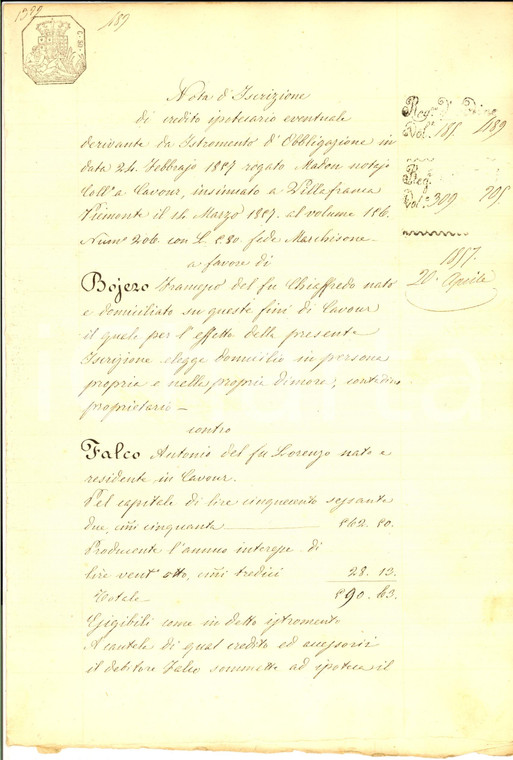 1399
189
Nota d'Iscrizione
di credito ipotecario eventuale
derivante da Istromento d'Obbligazione in
data 24. Febbrajo 1857 rogato Madon notajo
Coll'a Cavour, insinuato a Villafranca
Piemonte il 14 Marzo 1857. al volume 186.
Num° 206. con L. 5.80. fede Marchisone_
a favore di
Bojero Franco del fu Chiaffredo nato
e domiciliato su queste fini di Cavour
il quale per l'effetto della presente
Iscrizione elegge domicilio in persona
propria e nelle proprie dimore; contadino
proprietario_
contro
Falco Antonio del fu Lorenzo nato e
residente in Cavour.
Pel capitale di lire cinquecento sessanta
due, cmi cinquanta 562. 50.
Producente l'annuo interesse di
lire vent'otto, cmi tredici 28. 13.
Totale_ 590. 63.
Esigibili come in detto istromento
A cautela di qual credito ed accessorii
il debitore Falco sommette ad ipoteca il
Vol. 187. 189
Reg.
Vol. 309 205
1857.
20. Aprile